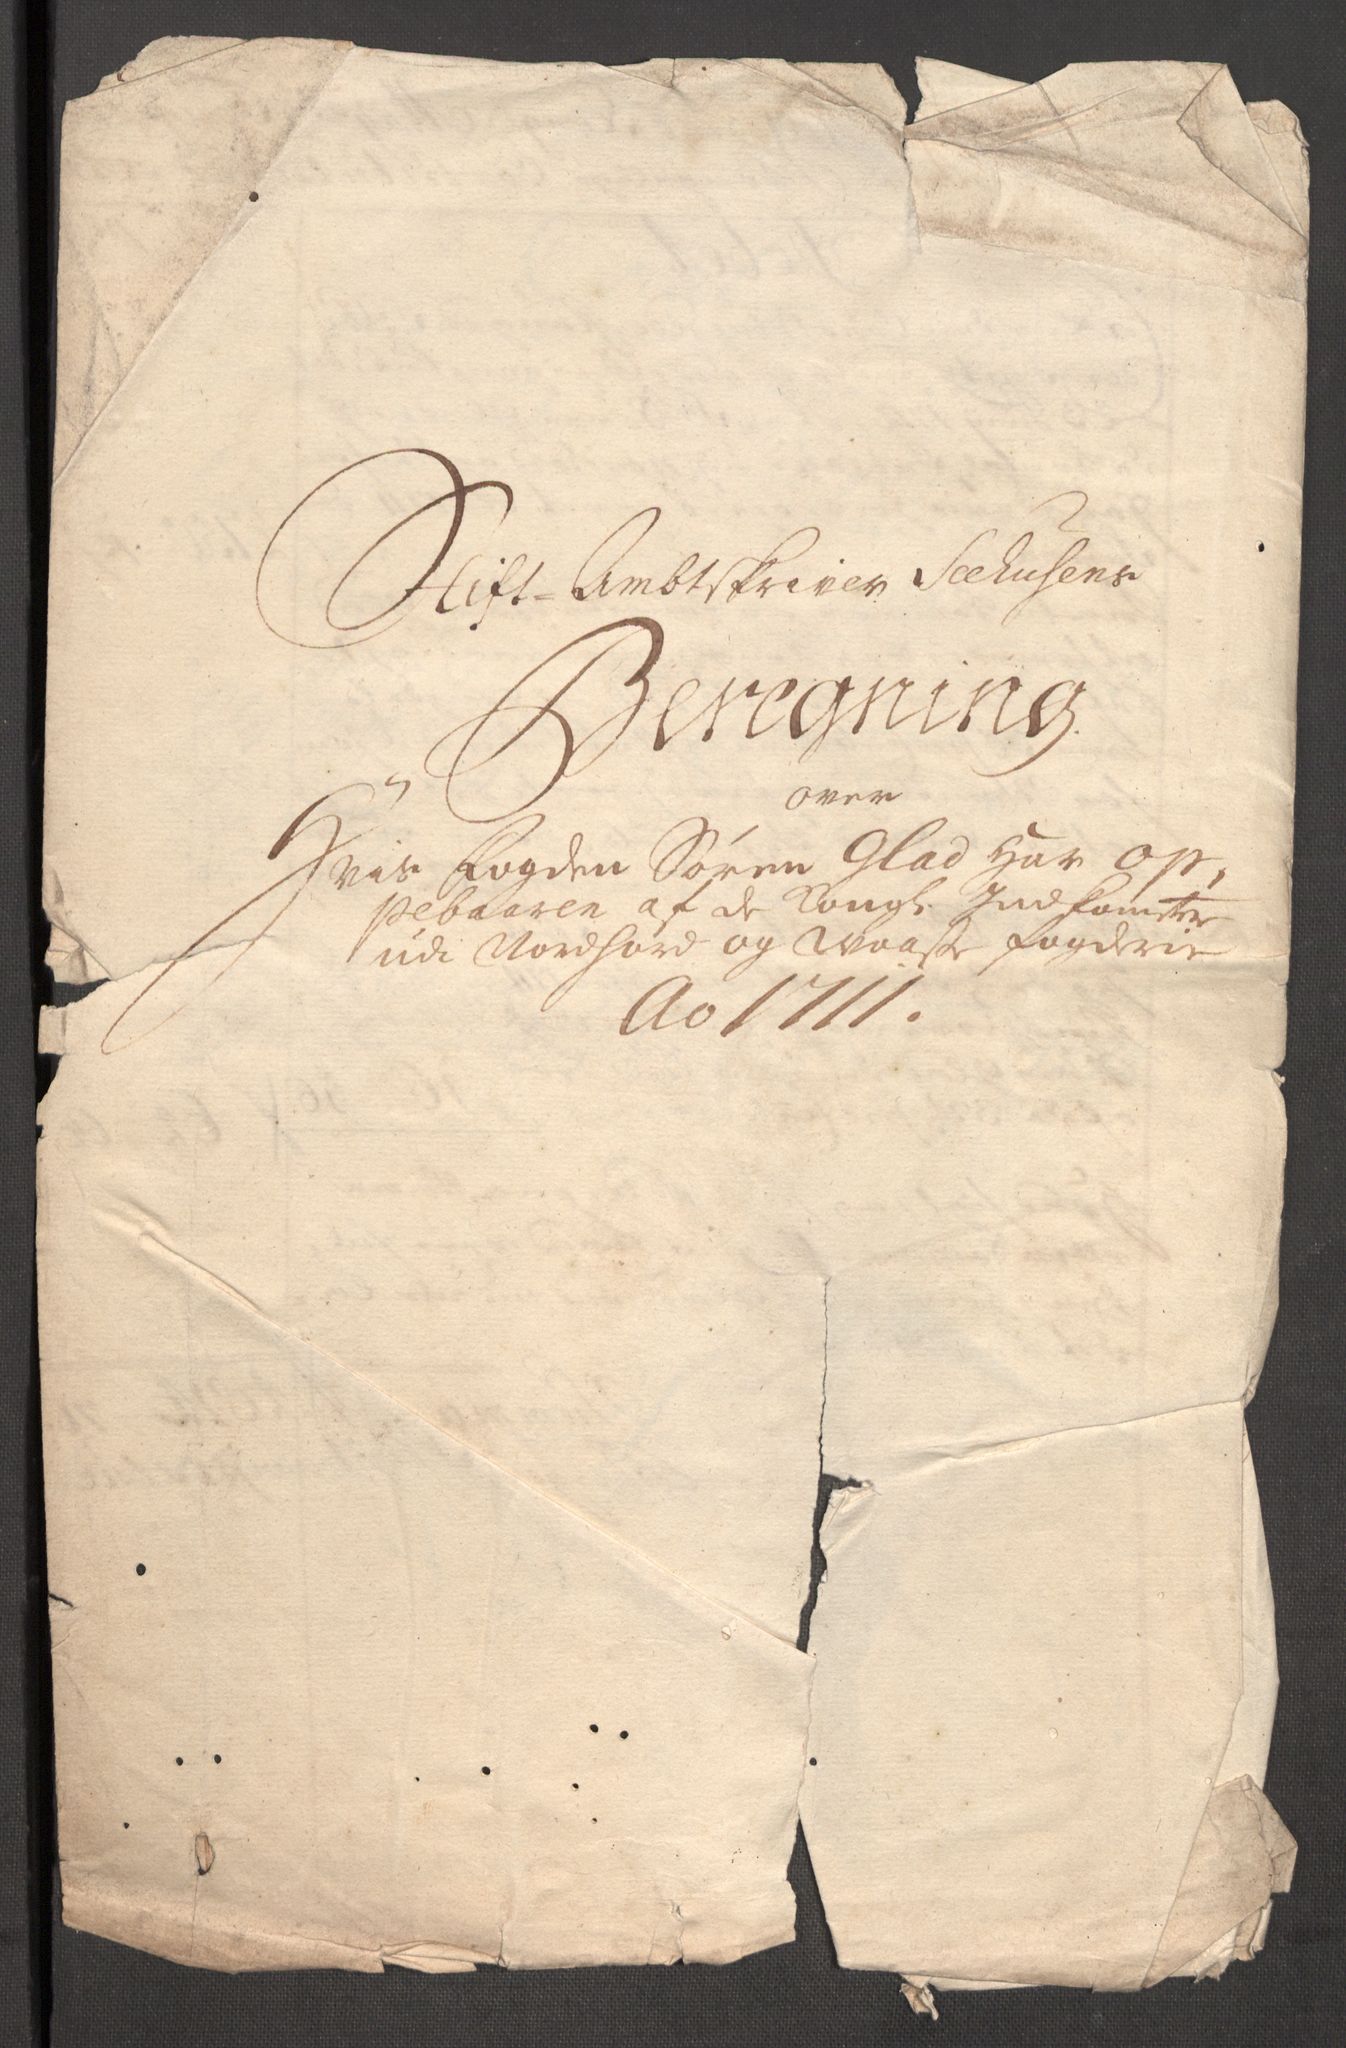 Stift-Ambtskriver Seehusens
Beregning
over
Hvis Fogden Søren Glad Har op,
pebaaren af de Kongl. Indkomster
udi Nordhord og Waasse fogderie
Ao 1711.